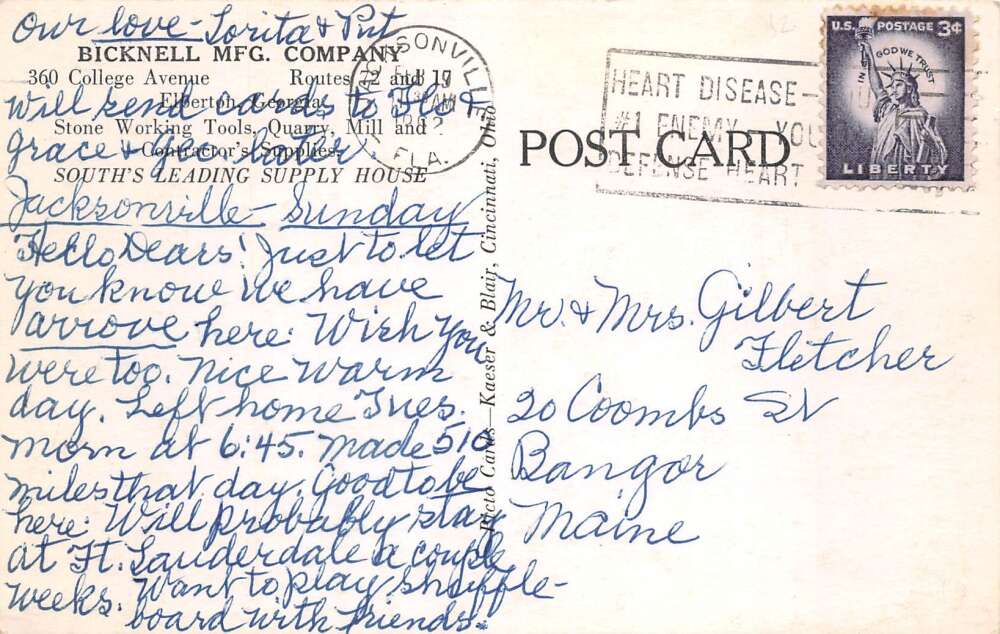 Our love - Lorita & Put
BICKNELL MFG. COMPANY
360 College Avenue Routes 72 and 17
Elberton, Georgia
Will send cards to Flo &
Stone Working Tools, Quarry, Mill and
Contractor's Supplies
Grace + Geo. later
SOUTH'S LEADING SUPPLY HOUSE
Jacksonville - Sunday
Hello Dears! Just to let
you know we have
arrove here. Wish you
were too. Nice warm
day. Left home Tues.
morn at 6:45. Made 510
miles that day. Good to be
here. Will probably stay
at Ft. Lauderdale a couple
weeks. Want to play shuffle-
board with friends.
Picto Cards—Kaeser & Blair, Cincinnati, Ohio
JACKSONVILLE
AM
FLA.
HEART DISEASE—
#1 ENEMY YOU
DEFENSE HEART
U.S. POSTAGE 3¢
IN GOD WE TRUST
LIBERTY
POST CARD
Mr. & Mrs. Gilbert
Fletcher
20 Coombs St
Bangor
Maine